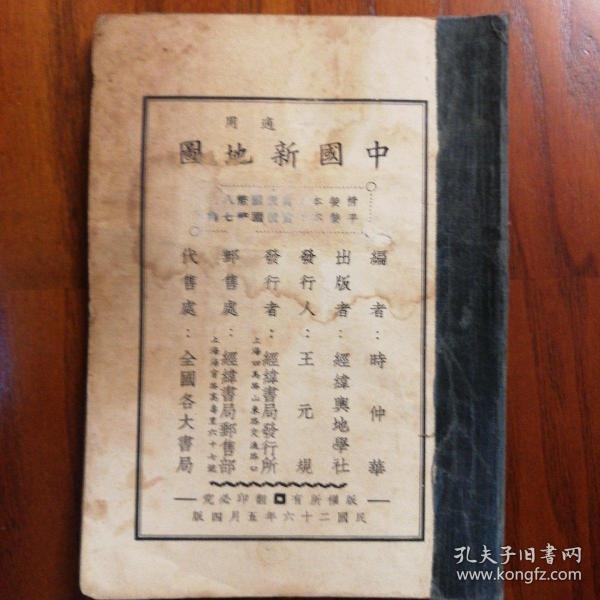 適用
中國新地圖
精裝本
平裝本
編者：時仲華
出版者：經緯輿地學社
發行人：王元規
發行者：經緯書局發行所
上海四馬路山東路交通路口
郵售處：經緯書局郵售部
上海海甯路高壽里六十七號
代售處：全國各大書局
版權所有 翻印必究
民國二十六年五月四版
孔夫子旧书网
www.kongfz.com